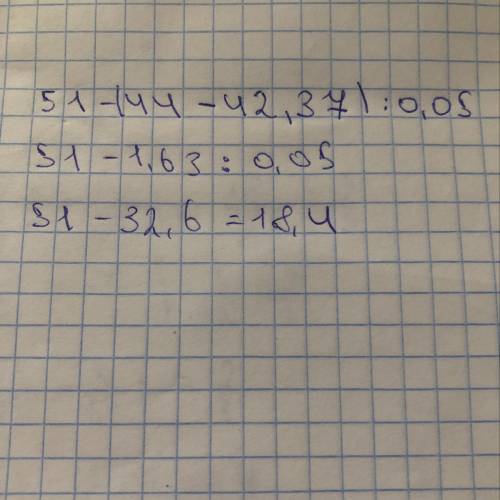 51 - (44 - 42,37) : 0,05
51 - 1,63 : 0,05
51 - 32,6 = 18,4